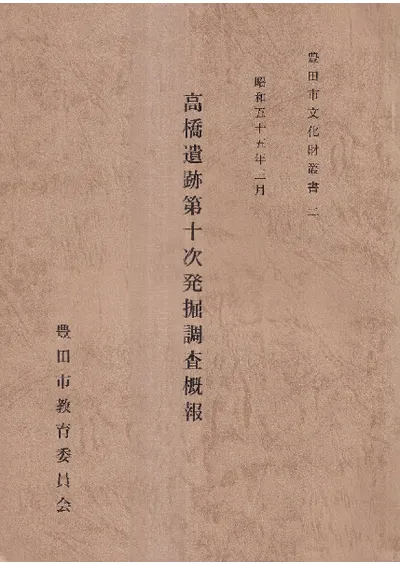 豊田市文化財叢書 二
昭和五十五年二月
高橋遺跡第十次発掘調査概報
豊田市教育委員会